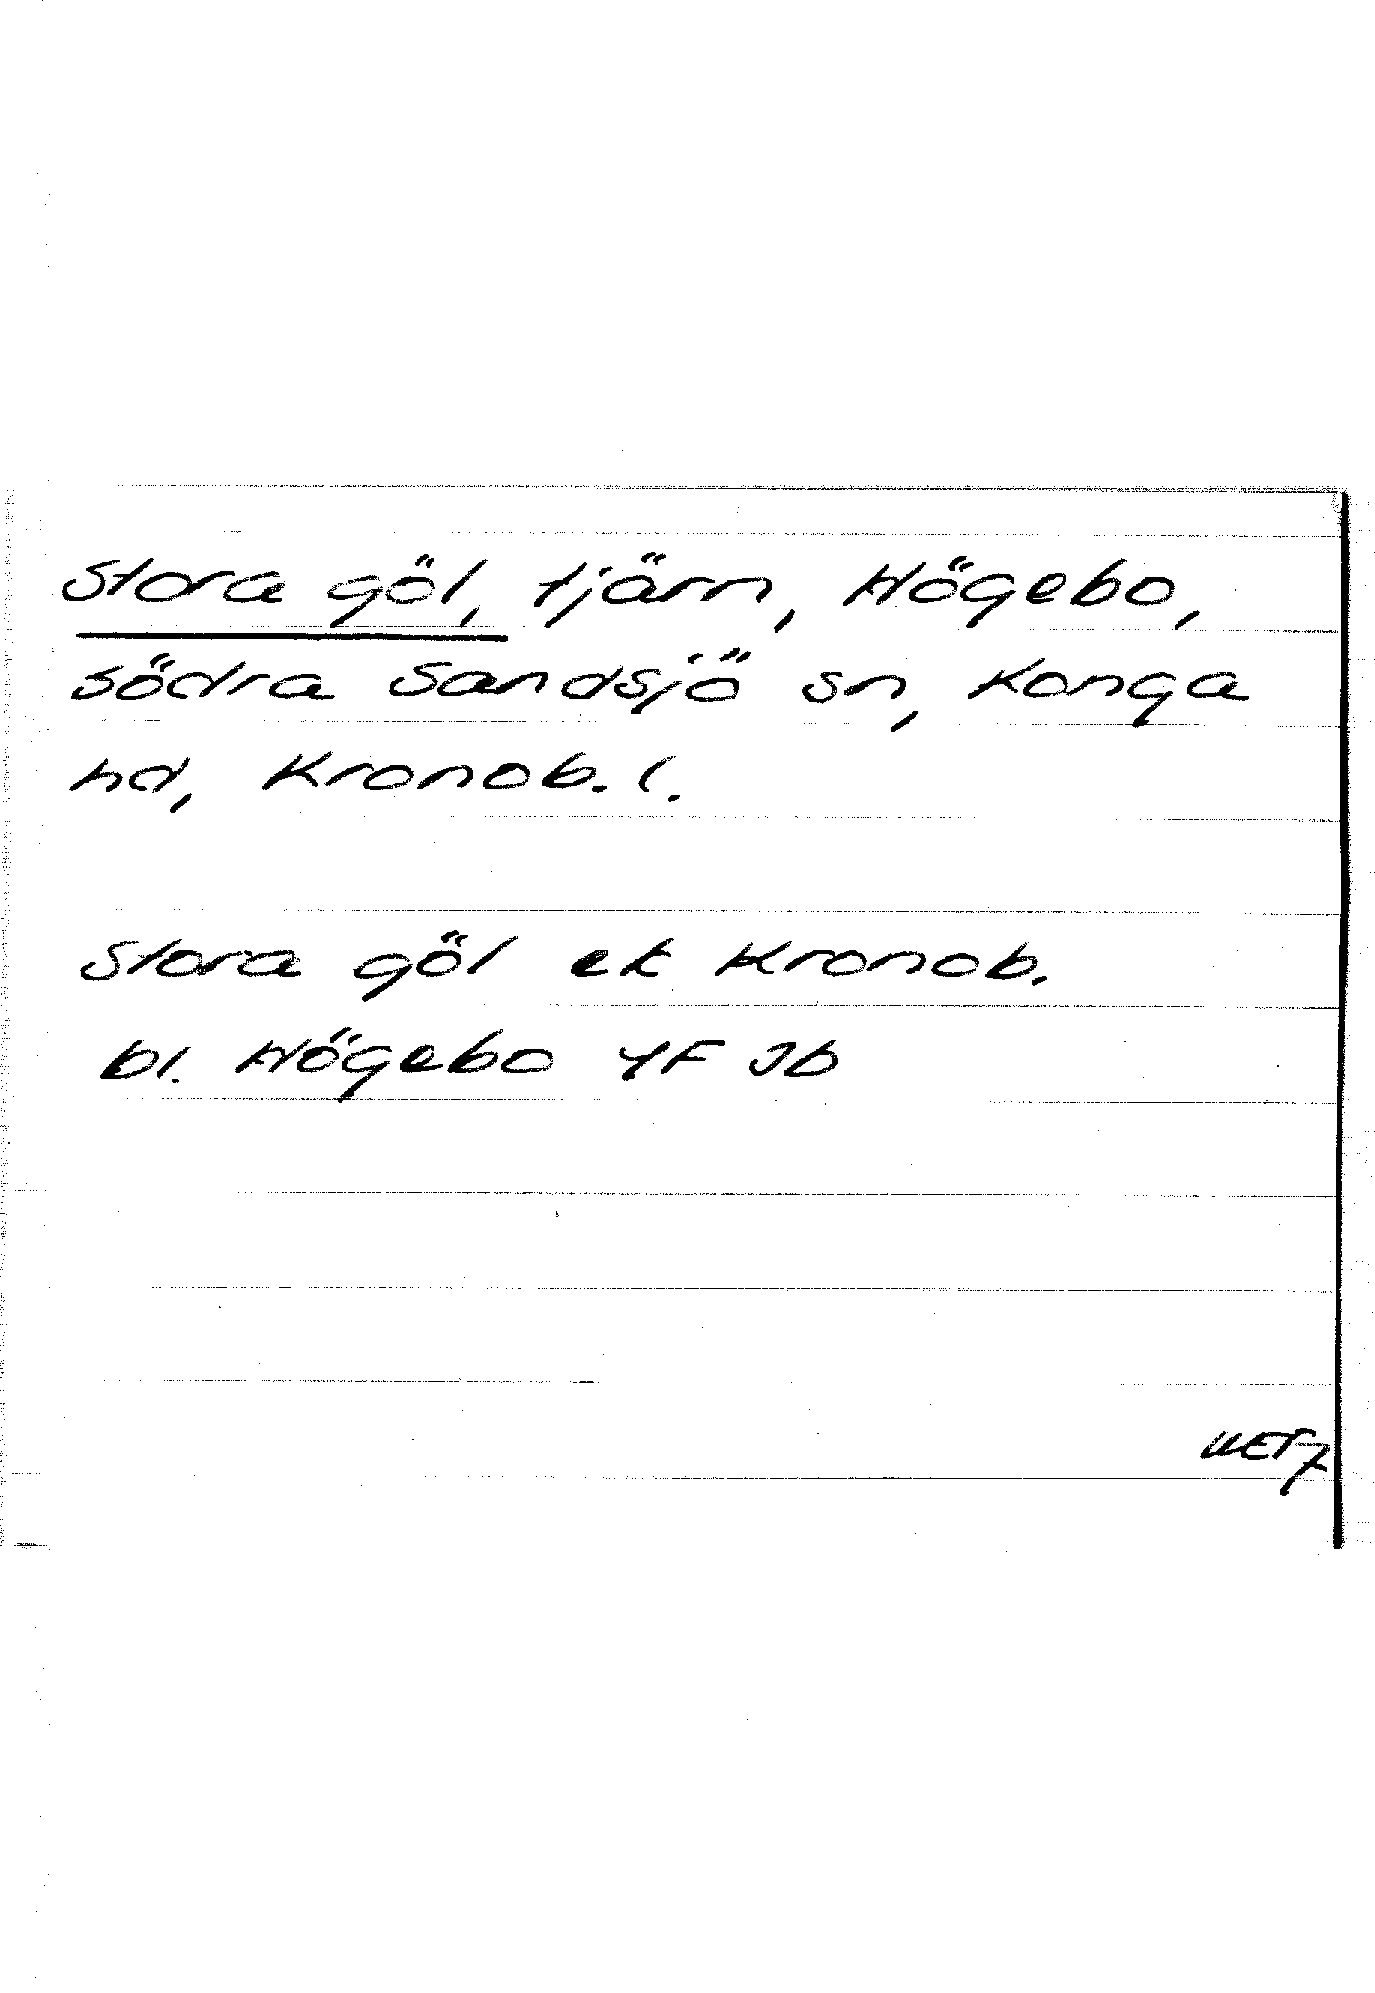 Stora göl, tjärn, Högebo,
södra Sandsjö sn, Konga
hd, Kronob. l.
Stora göl ek Kronob.
bl. Högebo 4F Jb